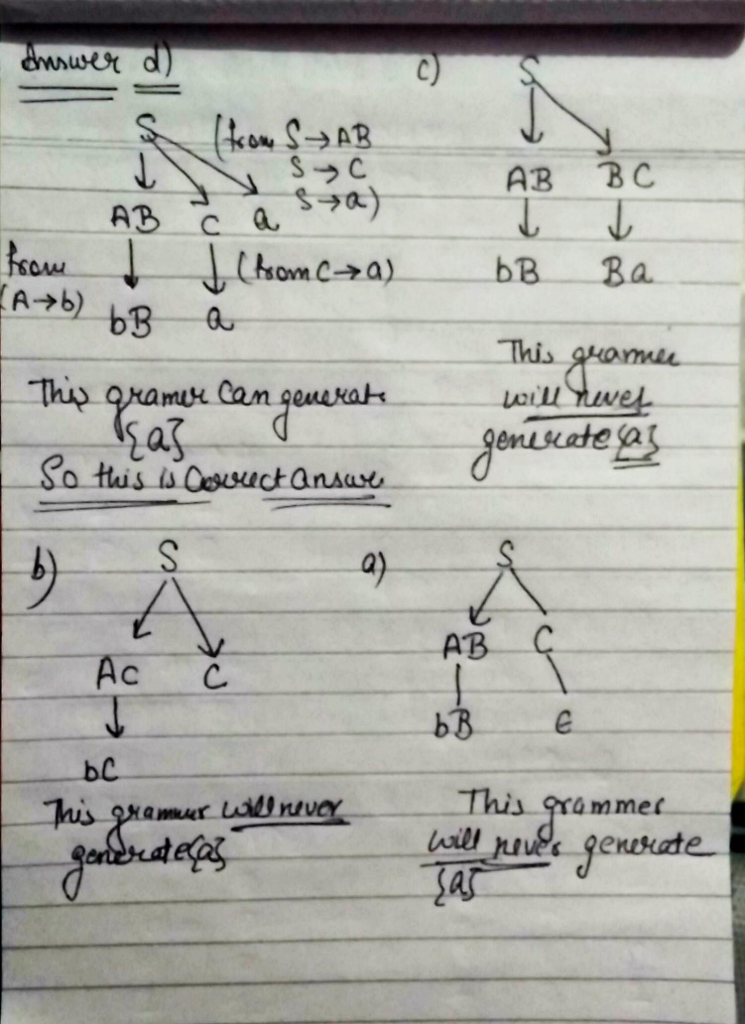 Answer d)
S (from S→AB
S→C
S→a)
AB C a
from (from C→a)
(A→b)
bB a
This gramer can generate
{a}
So this is Correct answer
c)
S
AB BC
bB Ba
This grammer
will never
generate {a}
b)
S
AC C
bC
This grammer will never
generate {a}
a)
S
AB C
bB ϵ
This grammer
will never generate
{a}